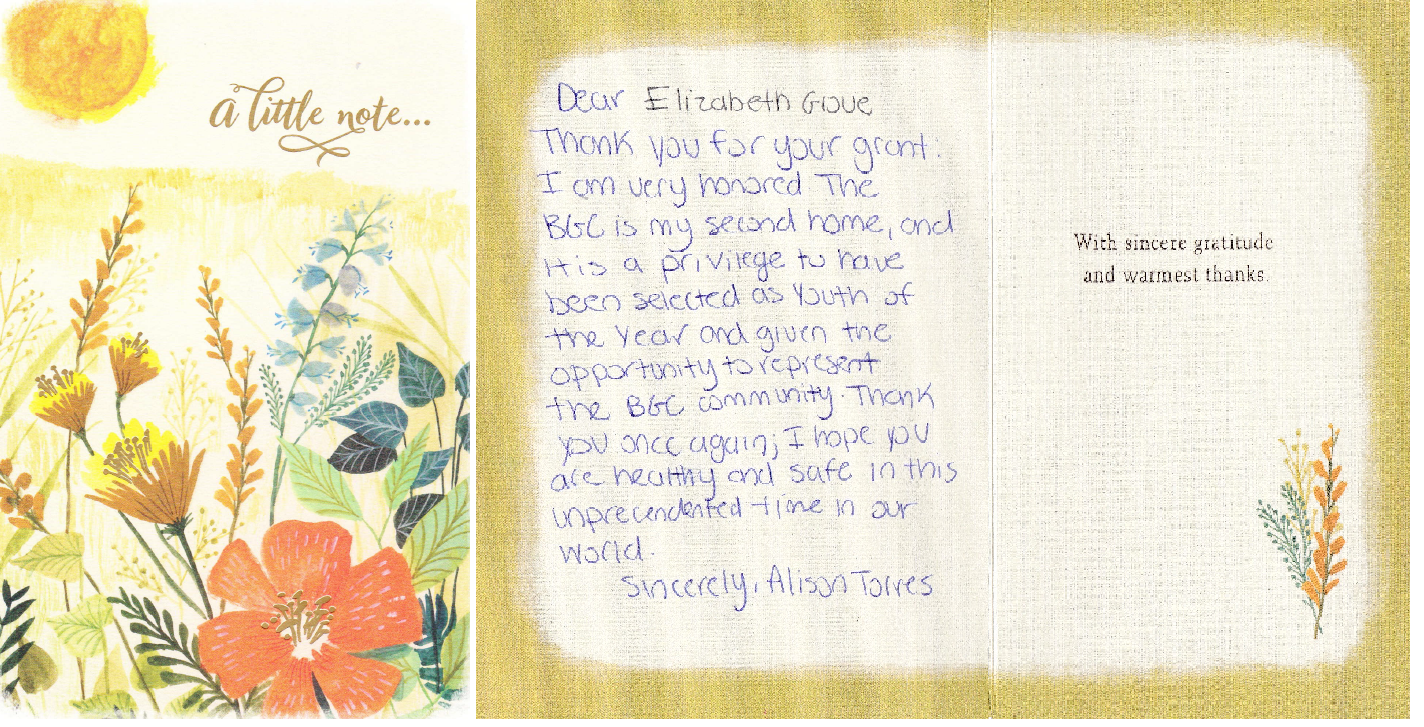 a little note...
Dear Elizabeth Gove
Thank you for your grant.
I am very honored The
BGC is my second home, and
it is a privilege to have
been selected as Youth of
the Year and given the
opportunity to represent
the BGC community. Thank
you once again; I hope you
are healthy and safe in this
unprecendented time in our
world.
Sincerely, Alison Torres
With sincere gratitude
and warmest thanks.